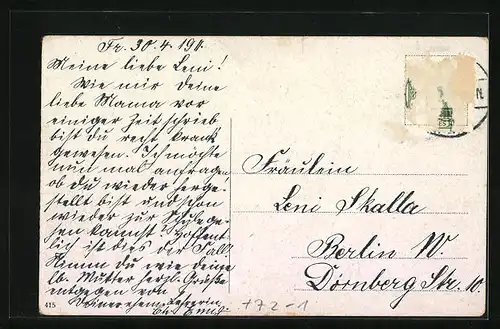 Fr. 30.4.191.
Meine liebe Leni!
Wie mir deine
liebe Mama vor
einiger Zeit schrieb
bist du recht krank
gewesen. Ich möchte
nun mal anfragen
ob du wieder herge-
stellt bist und schon
wieder zur Schule ge-
hen kannst? Hoffent-
lich ist dies der Fall.
Nimm du wie deine
lb. Mutter herzl. Grüße
entgegen von
Deiner ehem. Lehrerin
Fräulein
Leni Skalla
Berlin W.
Dornberg Str. 10.
415
+72-1